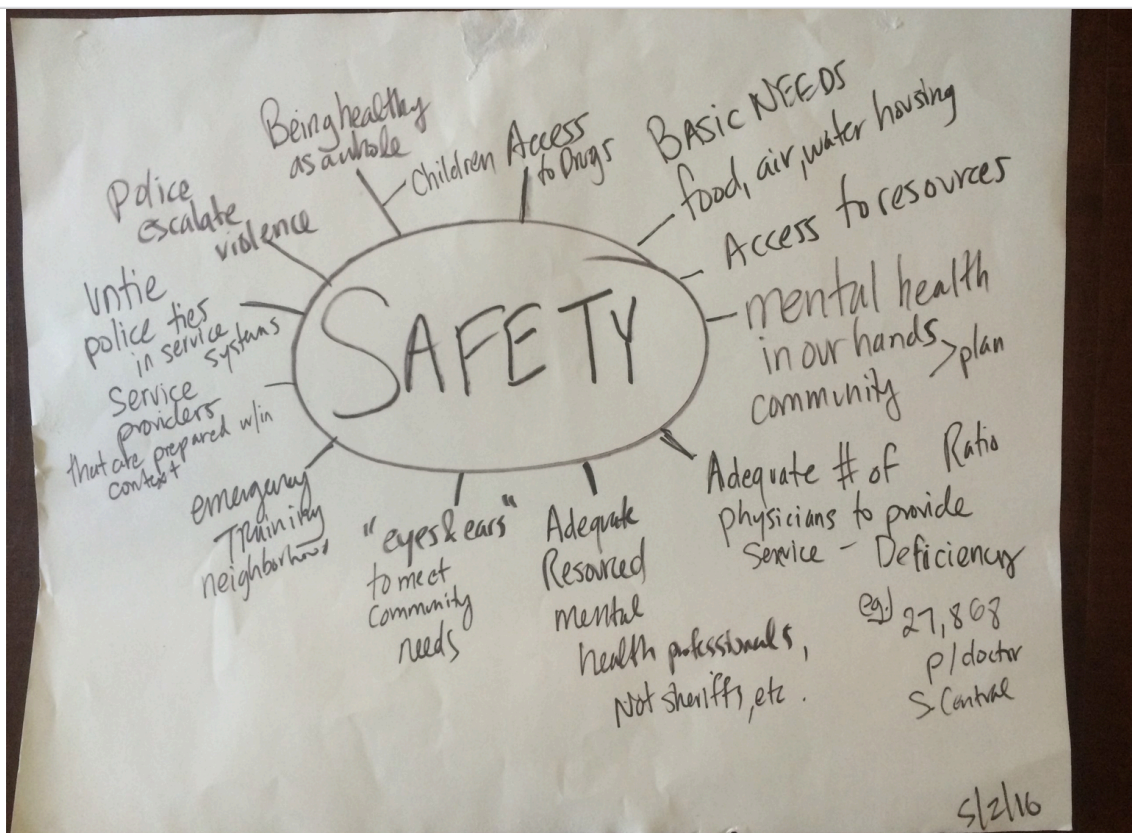 Being healthy
as a whole
Children Access
to Drugs
BASIC NEEDS
food, air, water housing
Access to resources
mental health
in our hands > plan
community
Adequate # of Ratio
physicians to provide
Service - Deficiency
eg.) 27,868
p/doctor
S. Central
Adequate
Resourced
mental
health professionals,
Not sheriffs, etc.
"eyes & ears"
to meet
Community
needs
emergency
Training
neighborhood
Service
providers
that are prepared w/in
context
Untie
police ties
in service
systems
Police
escalate
violence
SAFETY
5/2/16